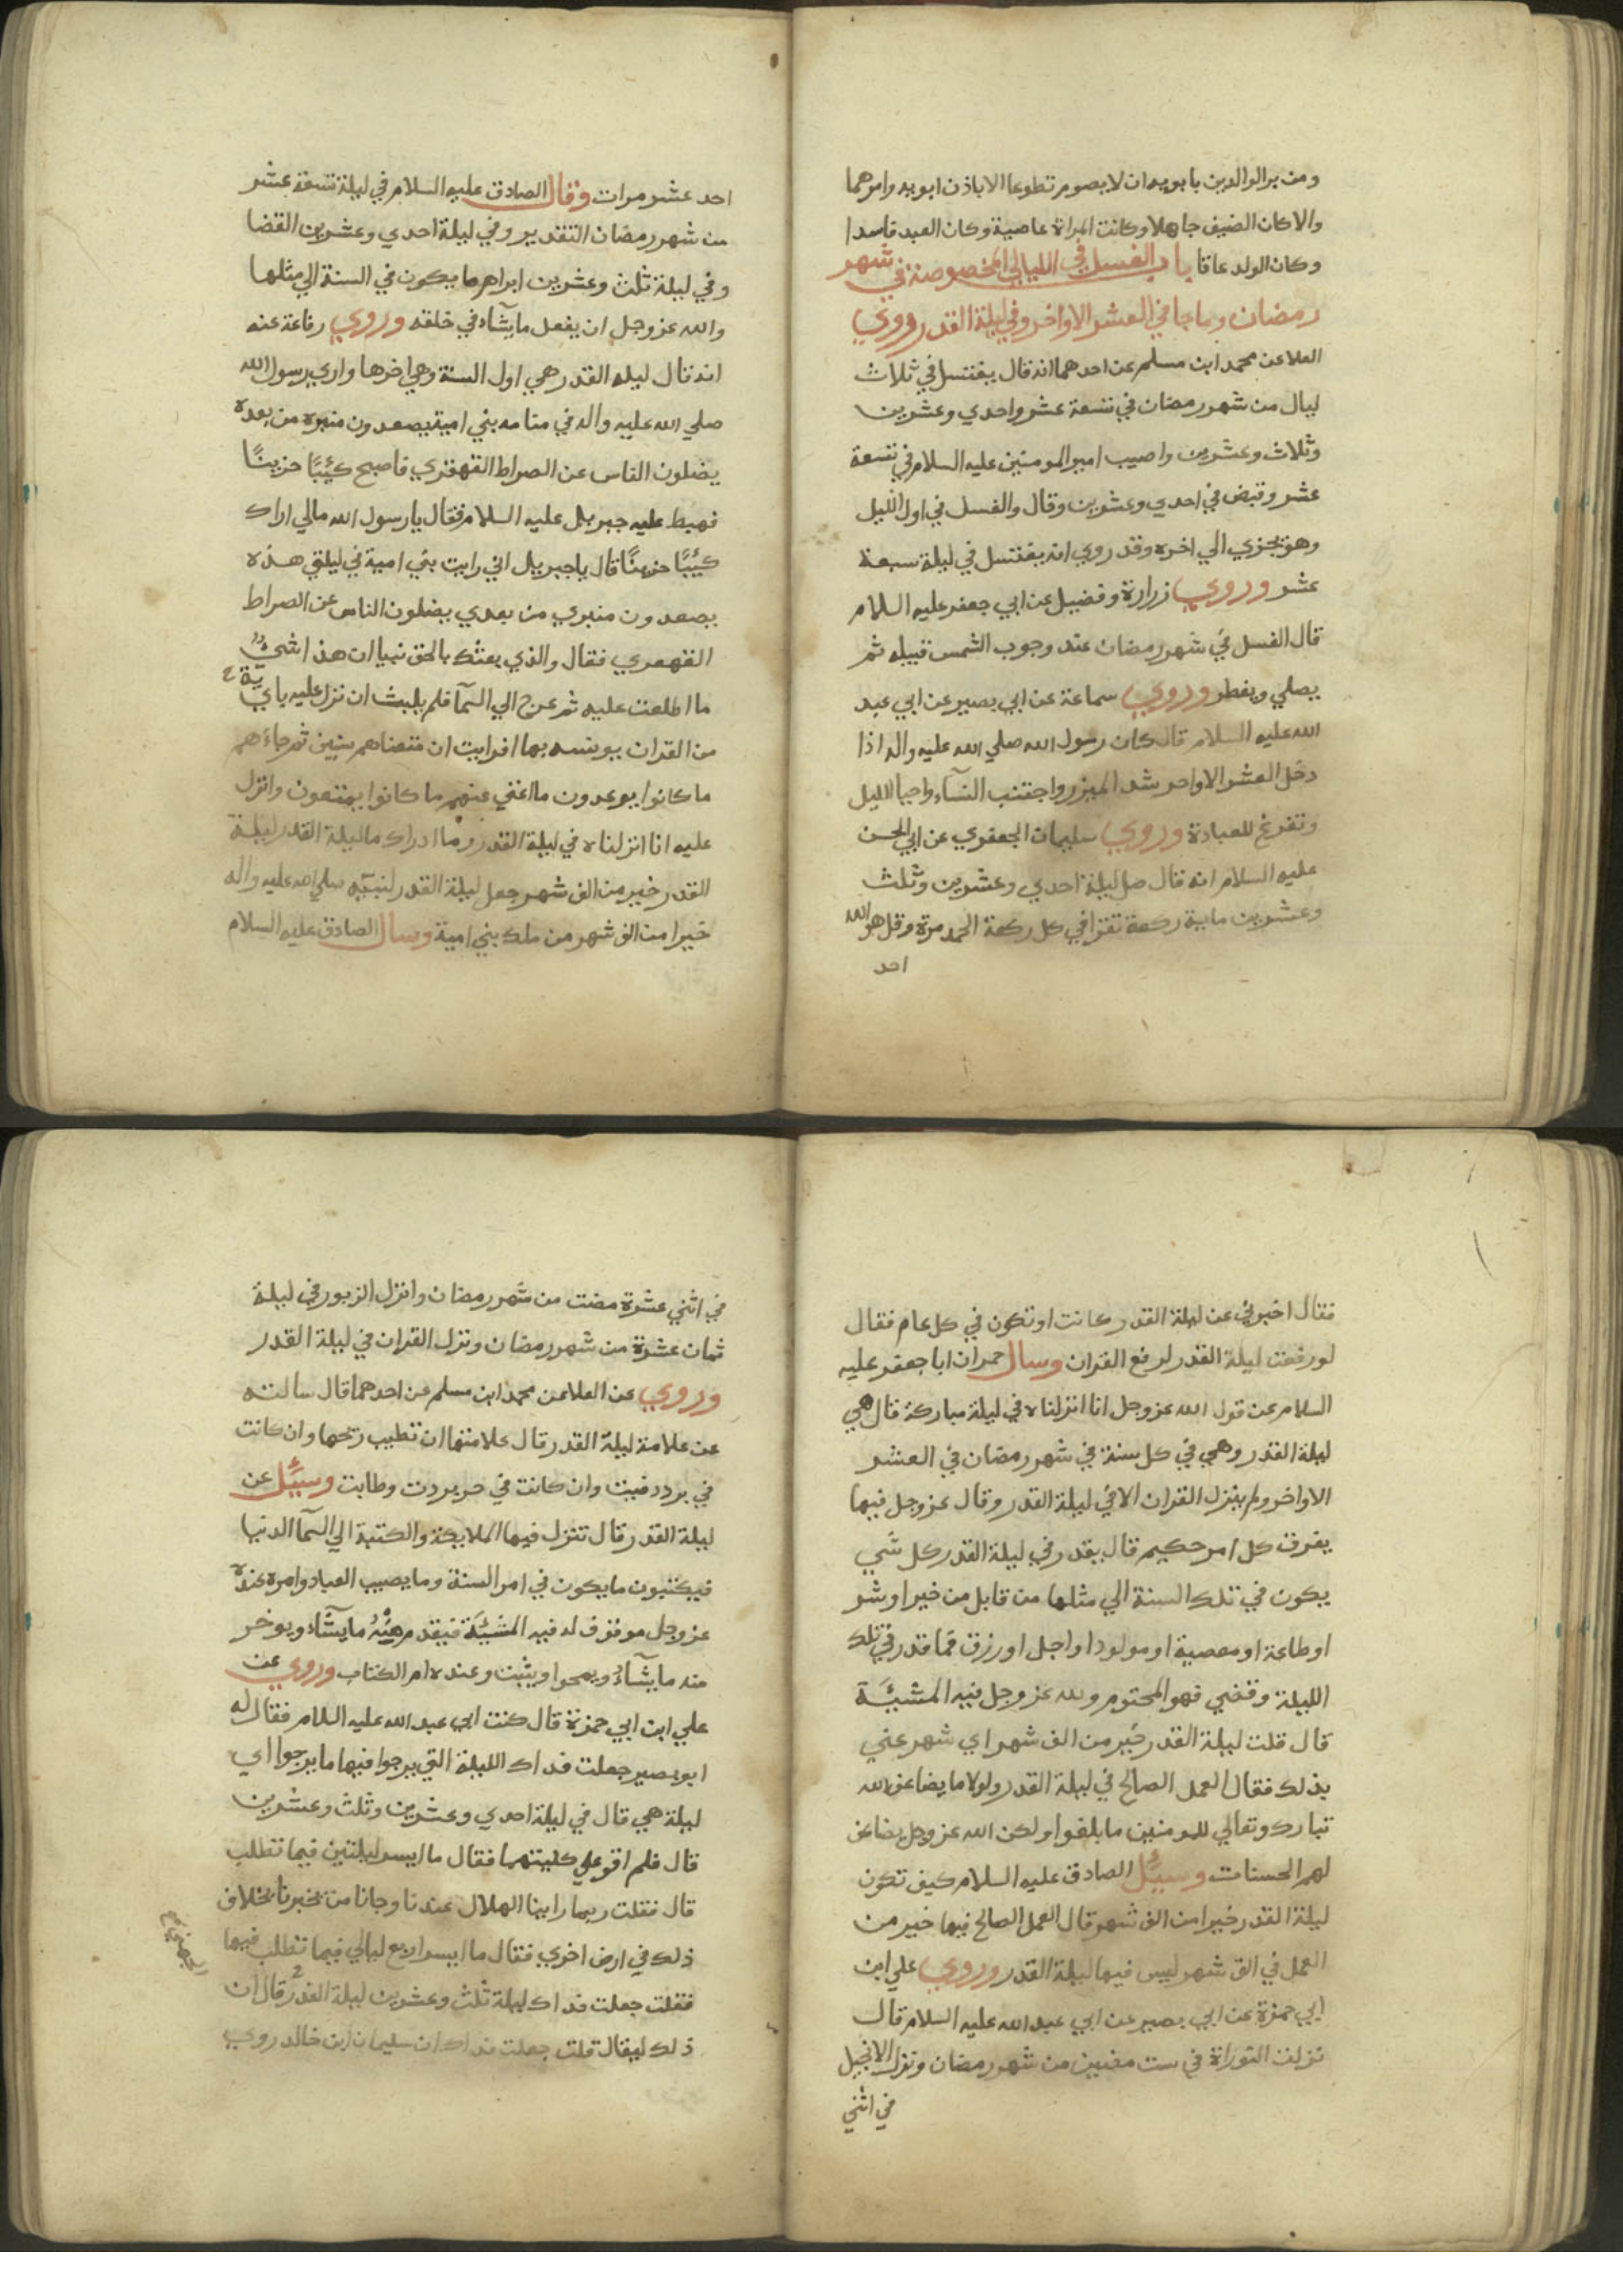 ومن بر الوالدين بابويه ان لا يصوم تطوعا الا باذن ابويه وامرهما
والا كان الضيف جاهلا وكانت المراة عاصية وكان العبد فاسدا
وكان الولد عاقا باب الغسل في الليالي المخصوصة في شهر
رمضان وما جا في العشر الاواخر وفي ليلة القدر روي
العلا عن محمد ابن مسلم عن احدهما انه قال يغتسل في ثلاث
ليال من شهر رمضان في تسعة عشر واحدي وعشرين
وثلاث وعشرين واصيب امير المومنين عليه السلام في تسعة
عشر وقبض في احدي وعشرين وقال والغسل في اول الليل
وهو يجزي الي اخره وقد روي انه يغتسل في ليلة سبعة
عشر وروي زرارة وفضيل عن ابي جعفر عليه السلام
قال الغسل في شهر رمضان عند وجوب الشمس قبيله ثم
يصلي ويفطر وروي سماعة عن ابي بصير عن ابي عبد
الله عليه السلام قال كان رسول الله صلي الله عليه واله اذا
دخل العشر الاواخر شد الميزر واجتنب النسآء واحيا الليل
وتفرغ للعبادة وروي سليمان الجعفري عن ابي الحسن
عليه السلام انه قال صل ليلة احدي وعشرين وثلث
وعشرين ماية ركعة تقرا في كل ركعة الحمد مرة وقل هو الله
احد
احد عشر مرات وقال الصادق عليه السلام في ليلة تسعة عشر
من شهر رمضان التقدير وفي ليلة احدي وعشرين القضا
وفي ليلة ثلث وعشرين ابرام ما يكون في السنة الي مثلها
والله عز وجل ان يفعل ما يشآء في خلقه وروي رفاعة عنه
انه قال ليلة القدر هي اول السنة وهي اخرها واري رسول الله
صلي الله عليه واله في منامه بني امية يصعدون منبره من بعده
يضلون الناس عن الصراط القهقري فاصبح كئيبًا حزينًا
فهبط عليه جبريل عليه السلام فقال يا رسول الله مالي اراك
كئيبًا حزينًا قال يا جبريل اني رايت بني امية في ليلتي هذه
يصعدون منبري من بعدي يضلون الناس عن الصراط
القهقري فقال والذي بعثك بالحق نبيا ان هذا شيءٌ
ما اطلعت عليه ثم عرج الي السمآ فلم يلبث ان نزل عليه باي ية
من القران يونسه بها افرايت ان متعناهم سنين ثم جاءهم
ما كانوا يوعدون ما اغني عنهم ما كانوا يمتعون وانزل
عليه انا انزلناه في ليلة القدر وما ادراك ما ليلة القدر ليلة
القدر خير من الف شهر جعل ليلة القدر لنبيه صلي الله عليه واله
خيرا من الف شهر من ملك بني امية وسال الصادق عليه السلام
فقال اخبرني عن ليلة القدر كانت او تكون في كل عام فقال
لو رفعت ليلة القدر لرفع القران وسال حمران ابا جعفر عليه
السلام عن قول الله عز وجل انا انزلناه في ليلة مباركة قال هي
ليلة القدر وهي في كل سنة في شهر رمضان في العشر
الاواخر ولم ينزل القران الا في ليلة القدر وقال عز وجل فيها
يفرق كل امر حكيم قال يقدر في ليلة القدر كل شي
يكون في تلك السنة الي مثلها من قابل من خير او شر
او طاعة او معصية او مولود او اجل او رزق فما قدر في تلك
الليلة وقضي فهو المحتوم ولله عز وجل فيه المشيئة
قال قلت ليلة القدر خير من الف شهر اي شهر عني
بذلك فقال العمل الصالح في ليلة القدر ولولا ما يضاعف الله
تبارك وتعالي للمومنين ما بلغوا ولكن الله عز وجل يضاعف
لهم الحسنات وسئُل الصادق عليه السلام كيف تكون
ليلة القدر خيرا من الف شهر قال العمل الصالح فيها خير من
العمل في الف شهر ليس فيها ليلة القدر وروي علي ابن
ابي حمزة عن ابي بصير عن ابي عبد الله عليه السلام قال
نزلت التوراة في ست مضين من شهر رمضان ونزل الانجيل
في اثني
في اثني عشرة مضت من شهر رمضان وانزل الزبور في ليلة
ثمان عشرة من شهر رمضان ونزل القران في ليلة القدر
وروي عن العلا عن محمد ابن مسلم عن احدهما قال سالته
عن علامة ليلة القدر قال علامتها ان تطيب ريحها وان كانت
في برد دفيت وان كانت في حر بردت وطابت وسئُل عن
ليلة القدر قال تنزل فيها الملايكة والكتبة الي السمآ الدنيا
فيكتبون ما يكون في امر السنة وما يصيب العباد وامره عنده
عز وجل موقوف له فيه المشيئة فيقدم منهُ ما يشآء ويوخر
منه ما يشآءُ ويمحوا ويثبت وعنده ام الكتاب وروي عن
علي ابن ابي حمزة قال كنت ابي عبد الله عليه السلام فقال له
ابو بصير جعلت فداك الليلة التي يرجوا فيها ما يرجوا اي
ليلة هي قال في ليلة احدي وعشرين وثلث وعشرين
قال فلم اقو علي كليتهما فقال ما ايسر ليلتين فيما تطلب
قال فقلت ربما راينا الهلال عندنا وجانا من يخبرنا بخلاف
ذلك في ارض اخري فقال ما ايسر اربع ليالي فيما تطلب فيها
فقلت جعلت فداك ليلة ثلث وعشرين ليلة القدر قال ان
ذلك ليقال قلت جعلت فداك ان سليمان ابن خالد روي